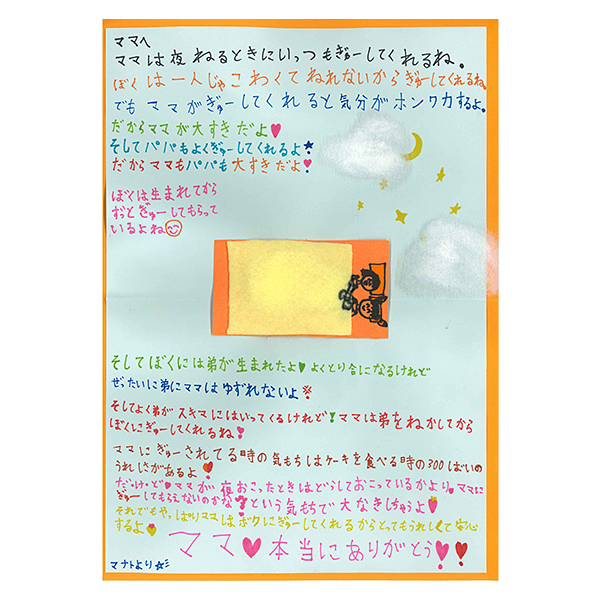 ママへ
ママは夜 ねるときにいっつもぎゅーしてくれるね。
ぼくは一人じゃこわくてねれないからぎゅーしてくれるね。
でもママがぎゅーしてくれると気分がホンワカするよ。
だからママが大すきだよ♥
そしてパパもよくぎゅーしてくれるよ!
だからママもパパも大すきだよ!
ぼくは生まれてから
ずっとぎゅーしてもらって
いるよね
そしてぼくには弟が生まれたよ! よくとり合になるけれど
ぜったいに弟にママはゆずれないよ!
そしてよく弟がスキマにはいってくるけれど!ママは弟をねかしてから
ぼくにぎゅーしてくれるね!
ママにぎゅーされてる時の気もちはケーキを食べる時の300ばいの
うれしさがあるよ!
だけど♥ママが夜おこったときはどうしておこっているかより。ママに
ぎゅーしてもらえないのかな?という気もちで大なきしちゃうよ
それでもやっぱりママはボクにぎゅーしてくれるからとってもうれしくて安心
するよ
ママ♥本当にありがとう!!
マナトより☆ミ